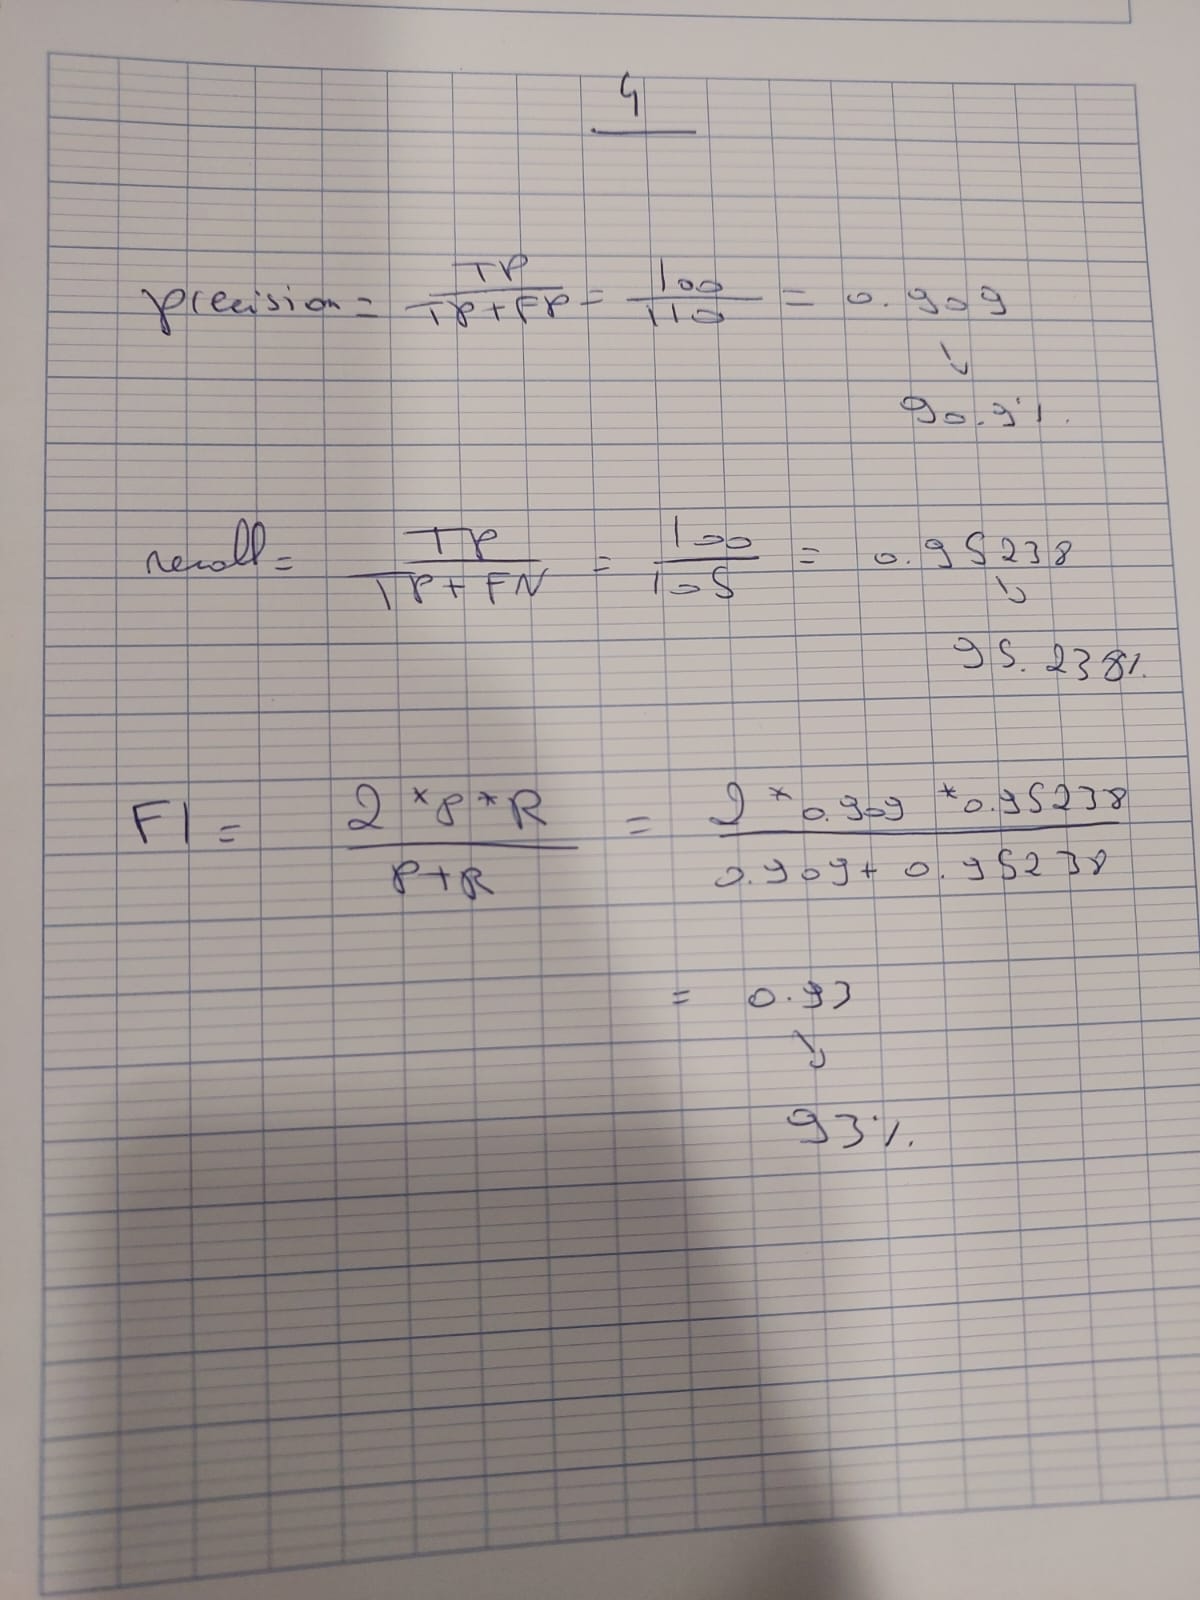 4
precision = TP / TP + FP = 100 / 110 = 0.909
↓
90.9%.
recall = TP / TP + FN = 100 / 105 = 0.95238
↓
95.238%.
F1 = 2 * P * R / P + R = 2 * 0.909 * 0.95238 / 0.909 + 0.95238
= 0.93
↓
93%.